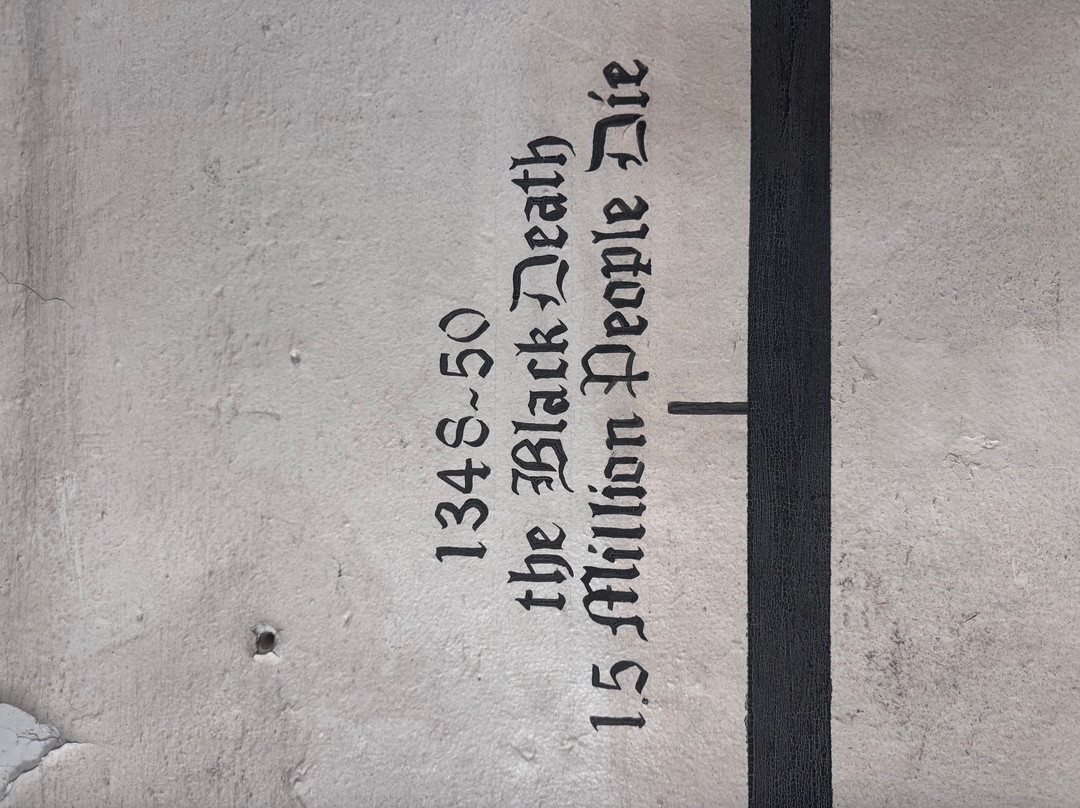 1348~50
the Black Death
1.5 Million People Die